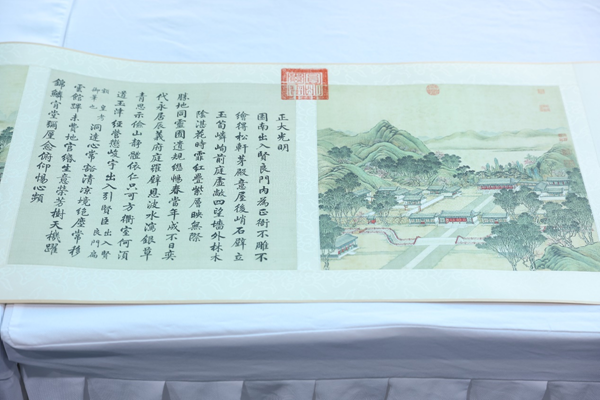 正大光明
園南出入賢良門內為正衙不雕不
繪得松軒茅殿意屋後峭石壁立
玉筍嶙峋前庭虛敞四望墻外林木
陰湛花時霏紅疊紫層映無際
勝地同靈囿遺規繼暢春當年成不日奕
代永居辰義府庭羅壁恩波水瀉銀草
青思示儉山靜體依仁只可方衢室何須
道玉津經營懲峻宇出入引賢臣出入賢良門
皇考御筆洞達心常豁清涼境絕塵常移
雲館蹕未費地官緡生意榮芳樹天機躍
錦鱗肯堂彌厪念俯仰惕心頻